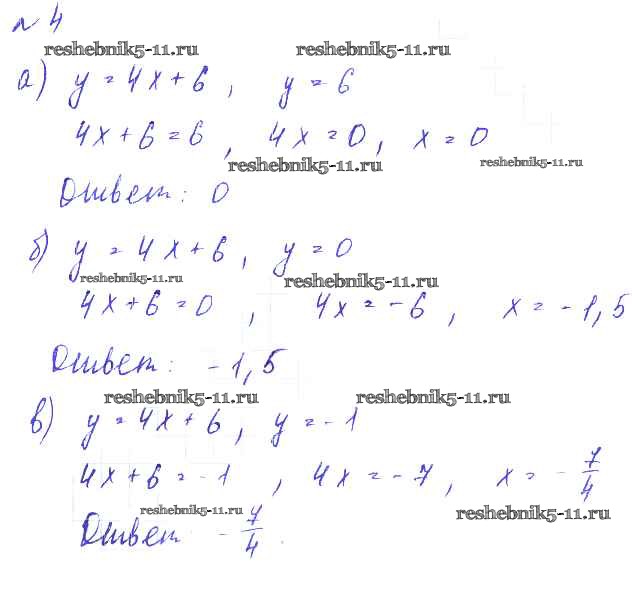 № 4
reshebnik5-11.ru reshebnik5-11.ru
а) y = 4x + 6, y = 6
4x + 6 = 6, 4x = 0, x = 0
reshebnik5-11.ru reshebnik5-11.ru
Ответ: 0
б) y = 4x + 6, y = 0
reshebnik5-11.ru reshebnik5-11.ru
4x + 6 = 0, 4x = -6, x = -1,5
Ответ: -1,5
reshebnik5-11.ru reshebnik5-11.ru
в) y = 4x + 6, y = -1
4x + 6 = -1, 4x = -7, x = -7/4
reshebnik5-11.ru reshebnik5-11.ru
Ответ -7/4.